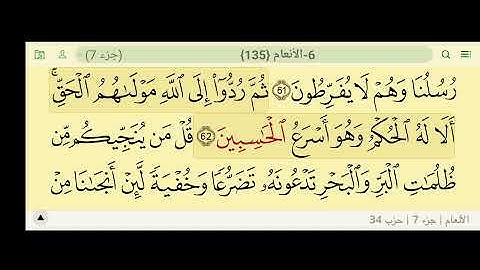 (جزء 7) 6-الأنعام {135}
رُسُلُنَا وَهُمْ لَا يُفَرِّطُونَ ﴿61﴾ ثُمَّ رُدُّوٓا۟ إِلَى ٱللَّهِ مَوْلَىٰهُمُ ٱلْحَقِّ ۚ
أَلَا لَهُ ٱلْحُكْمُ وَهُوَ أَسْرَعُ ٱلْحَـٰسِبِينَ ﴿62﴾ قُلْ مَن يُنَجِّيكُم مِّن
ظُلُمَـٰتِ ٱلْبَرِّ وَٱلْبَحْرِ تَدْعُونَهُۥ تَضَرُّعًا وَخُفْيَةً لَّئِنْ أَنجَىٰنَا مِنْ
الأنعام | جزء 7 | حزب 34